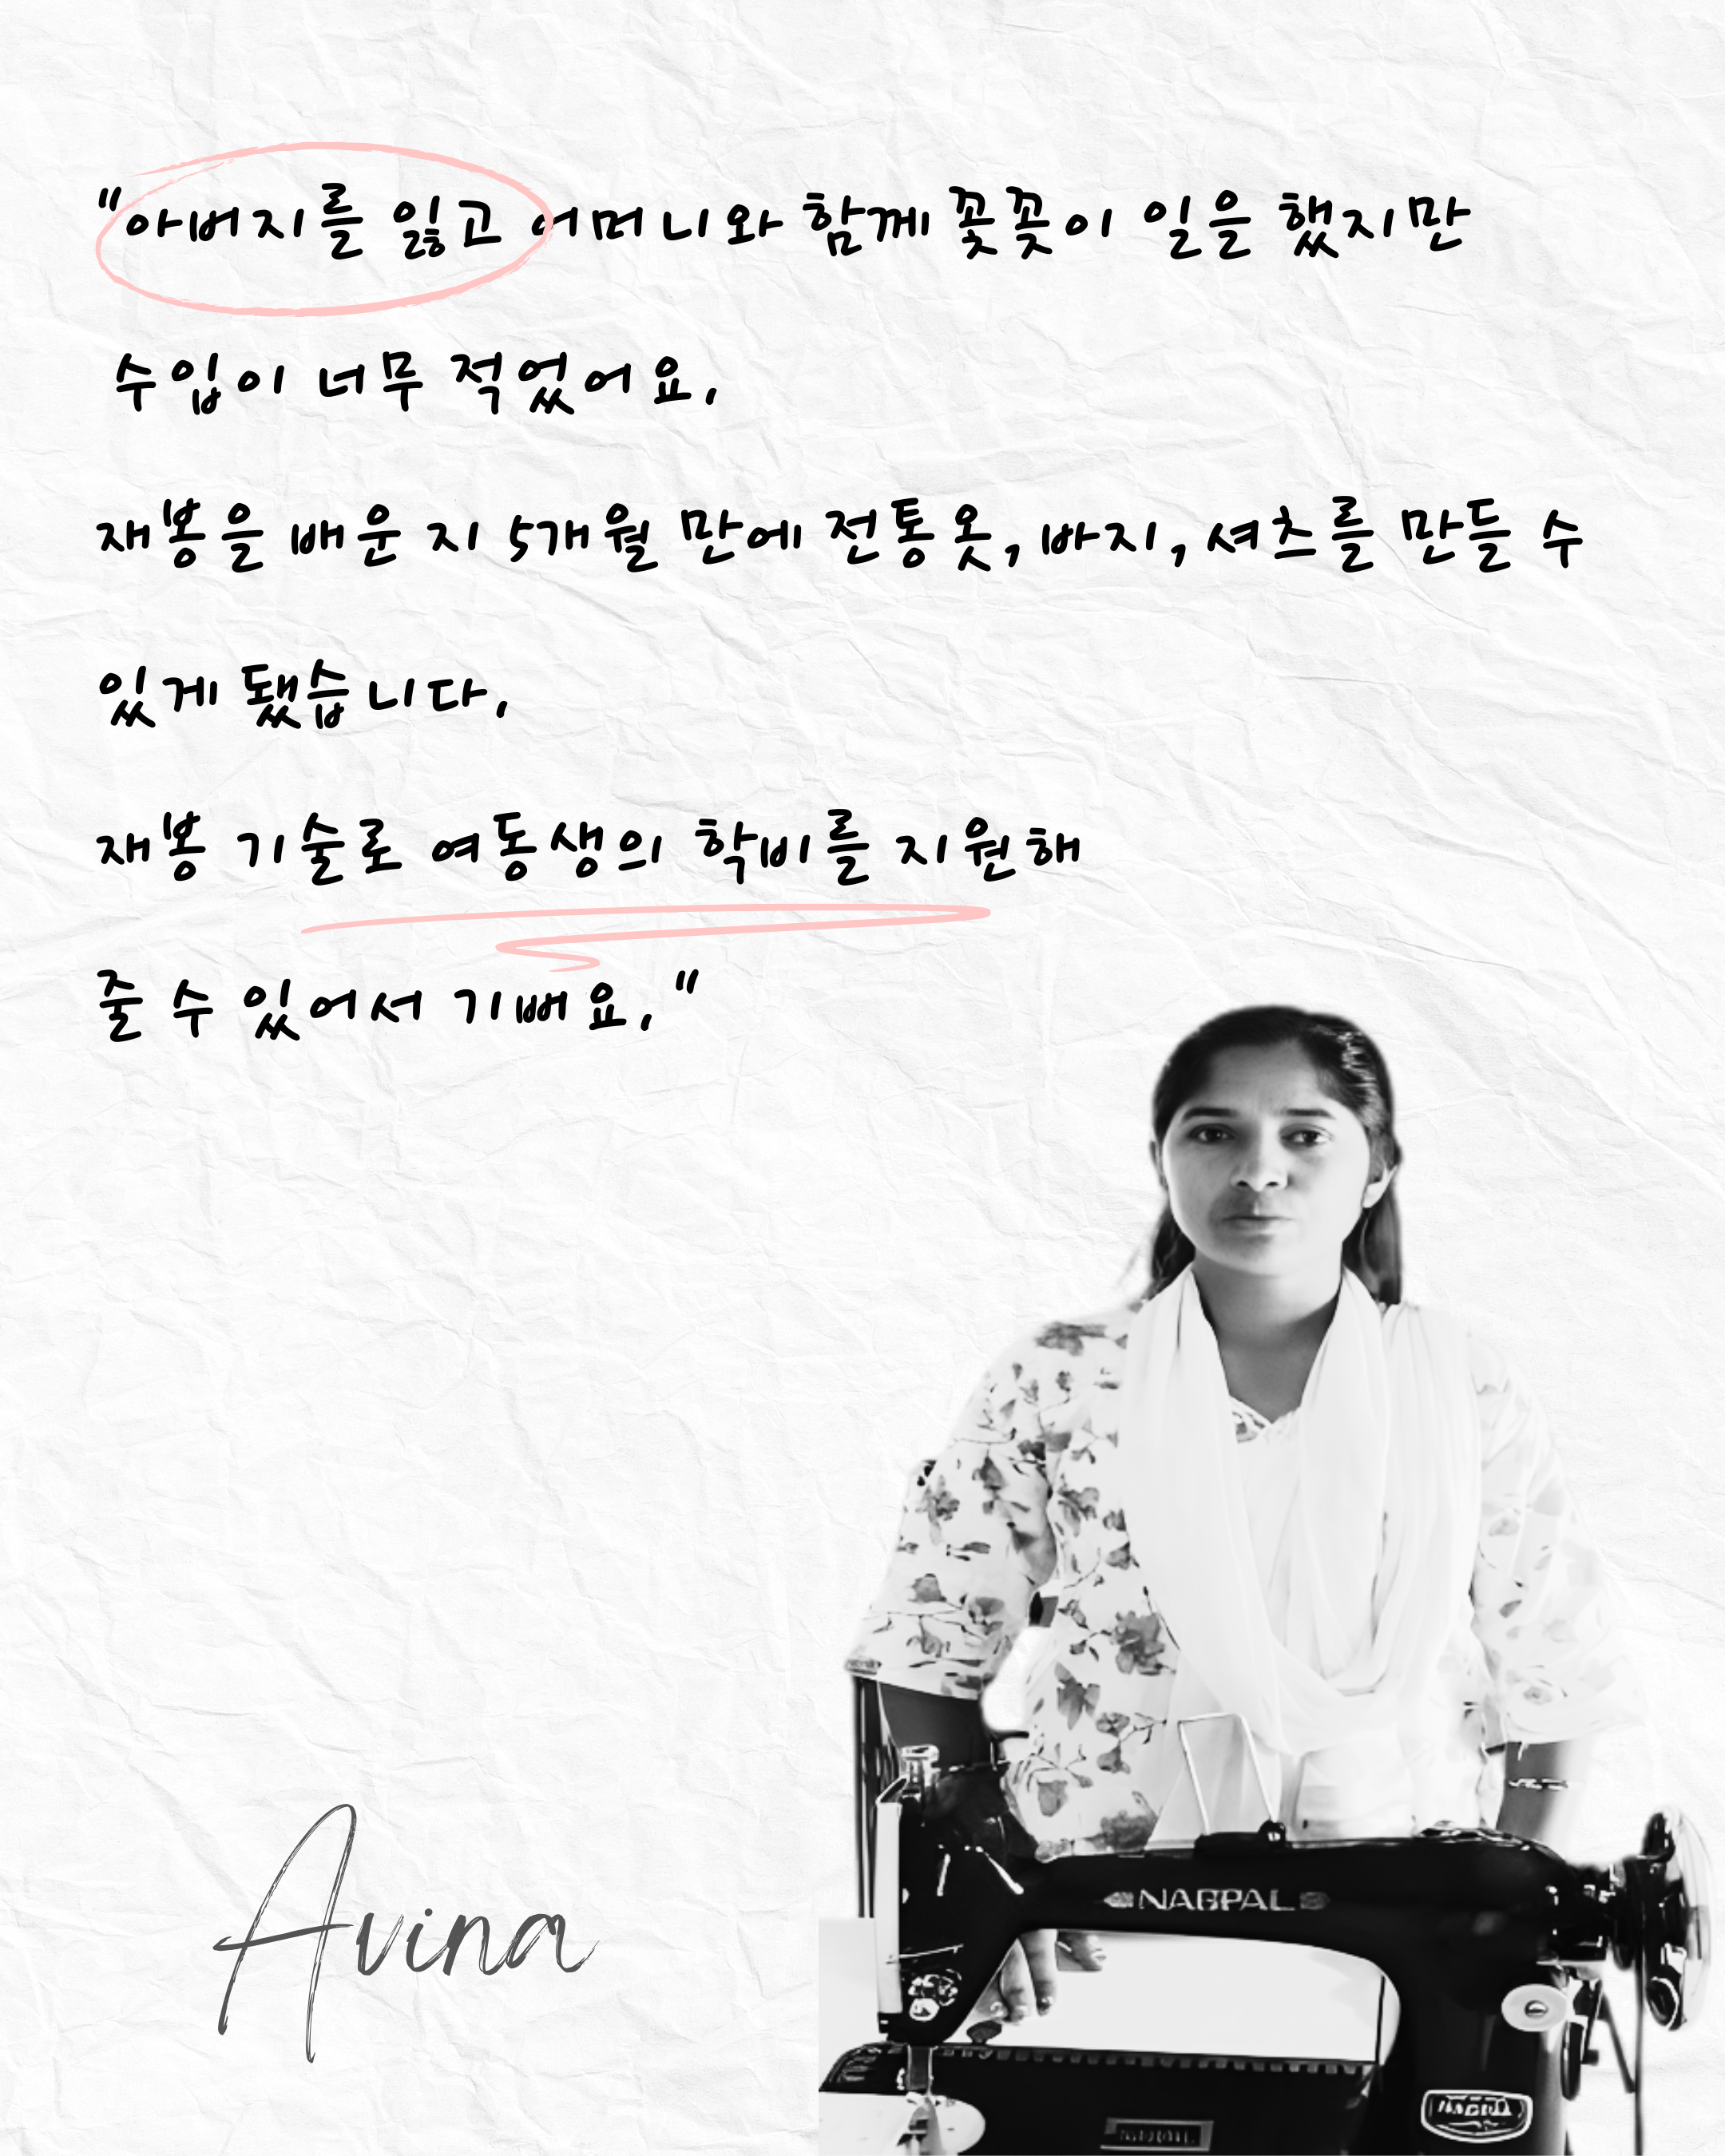 "아버지를 잃고 어머니와 함께 꽃꽂이 일을 했지만
수입이 너무 적었어요.
재봉을 배운 지 5개월 만에 전통옷, 바지, 셔츠를 만들 수
있게 됐습니다.
재봉 기술로 여동생의 학비를 지원해
줄 수 있어서 기뻐요."
Avina
NAGPAL